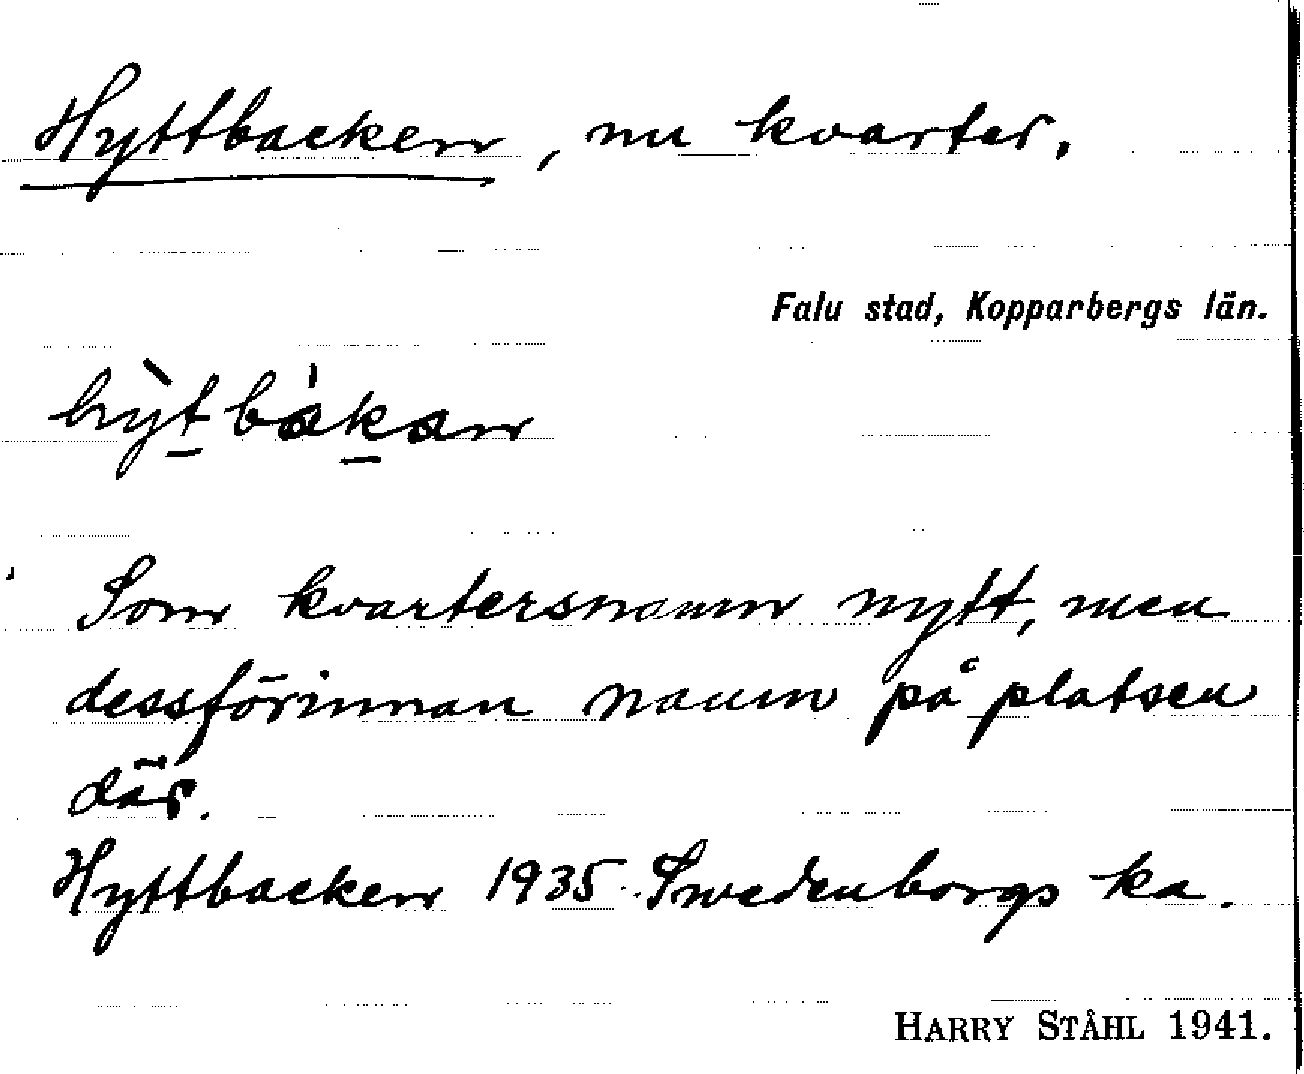 Hyttbacken, nu kvarter.
Falu stad, Kopparbergs län.
hỳt̠bàk̠an
Som kvartersnamn nytt, men
dessförinnan namn på platsen
där.
Hyttbacken 1935 Swedenborgs ka.
HARRY STÅHL 1941.